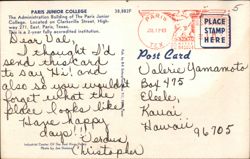 PARIS JUNIOR COLLEGE
38,882F
The Administration Building of The Paris Junior
College. Located on Clarksville Street, High-
way 271, East, Paris, Texas.
This is a 2-year fully accredited institution.
PARIS
TEX.
PLACE
STAMP
HERE
Dear Val,
I thought I'd
send this card
to say "Hi" and
also so you wouldn't
forget what this
place looks like!
Have happy
days!!
Christopher
Post Card
Valerie Yamamoto
Box 475
Eleele,
Kauai
Hawaii
96705